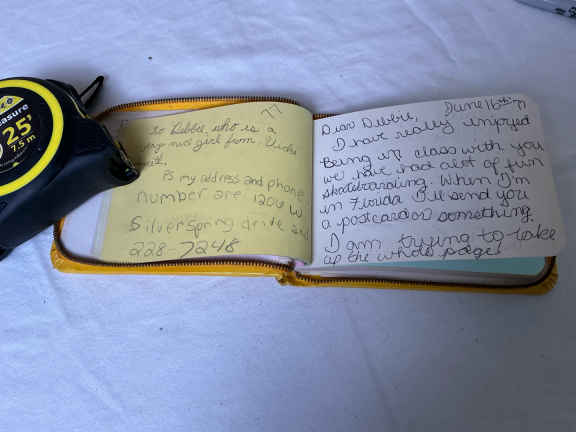 easure
25'
7.5 m
77
to Debbie, who is a
very nice girl from. Vicki
Ps my address and phone
number are 1206 W
Silver Spring drive and
228-7248
June 16th 77
Dear Debbie,
I have really injoyed
Being in class with you
we have had alot of fun
skateboarding. When I'm
in Florida I'll send you
a postcard or something.
I am trying to take
up the whole page